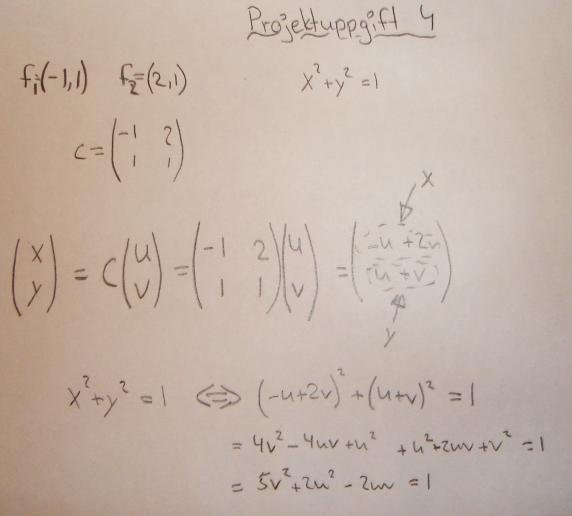 Projektuppgift 4
f₁=(-1,1) f₂=(2,1) x²+y²=1
C=(-1 2
1 1)
x
(x y) = C(u v) = (-1 2 1 1)(u v) = (-u+2v u+v)
y
x²+y²=1 ⇔ (-u+2v)²+(u+v)²=1
= 4v²-4uv+u² +u²+2uv+v²=1
= 5v²+2u²-2uv=1